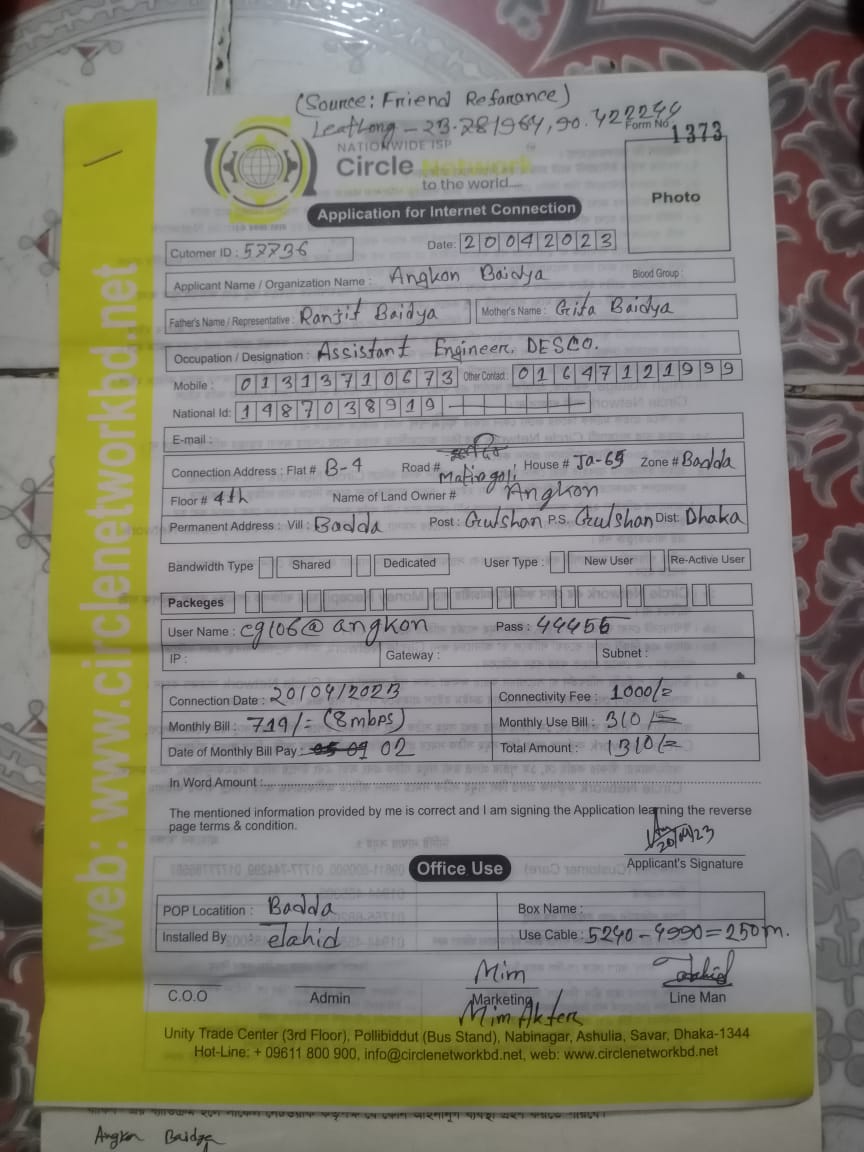 (Source: Friend Refarance)
Leatlong - 23.781964, 90.422244
Form No 1373
NATIONWIDE ISP
Circle Network
to the world....
Photo
Application for Internet Connection
Cutomer ID : 57736 Date: 20042023
Applicant Name / Organization Name : Angkon Baidya Blood Group :
Father's Name / Representative : Ranjit Baidya Mother's Name : Gita Baidya
Occupation / Designation : Assistant Engineer, DESCO.
Mobile : 01313710673 Other Contact : 01647121999
National Id: 1487038919
E-mail :
Connection Address : Flat # B-4 Road # House # Ja-65 Zone # Badda
Floor # 4th Name of Land Owner # Angkon
Permanent Address : Vill : Badda Post : Gulshan P.S. Gulshan Dist: Dhaka
Bandwidth Type Shared Dedicated User Type : New User Re-Active User
Packeges
User Name : cg106@angkon Pass : 44455
IP : Gateway : Subnet :
Connection Date : 20/04/2023 Connectivity Fee : 1000/=
Monthly Bill : 719/= (8mbps) Monthly Use Bill : 310/=
Date of Monthly Bill Pay : 02 Total Amount : 1310/=
In Word Amount :
The mentioned information provided by me is correct and I am signing the Application learning the reverse
page terms & condition.
20/04/23
Applicant's Signature
Office Use
POP Locatition : Badda Box Name :
Installed By : Use Cable : 5240-4990=250m.
Mim
C.O.O Admin Marketing Line Man
Mim Akter
Unity Trade Center (3rd Floor), Pollibiddut (Bus Stand), Nabinagar, Ashulia, Savar, Dhaka-1344
Hot-Line: + 09611 800 900, info@circlenetworkbd.net, web: www.circlenetworkbd.net
web: www.circlenetworkbd.net
Angkon Baidya